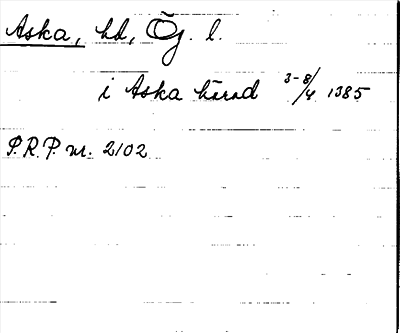 Aska, hd, Ög. l.
i Aska härad 3-8/4 1385
P.R.P. nr. 2102